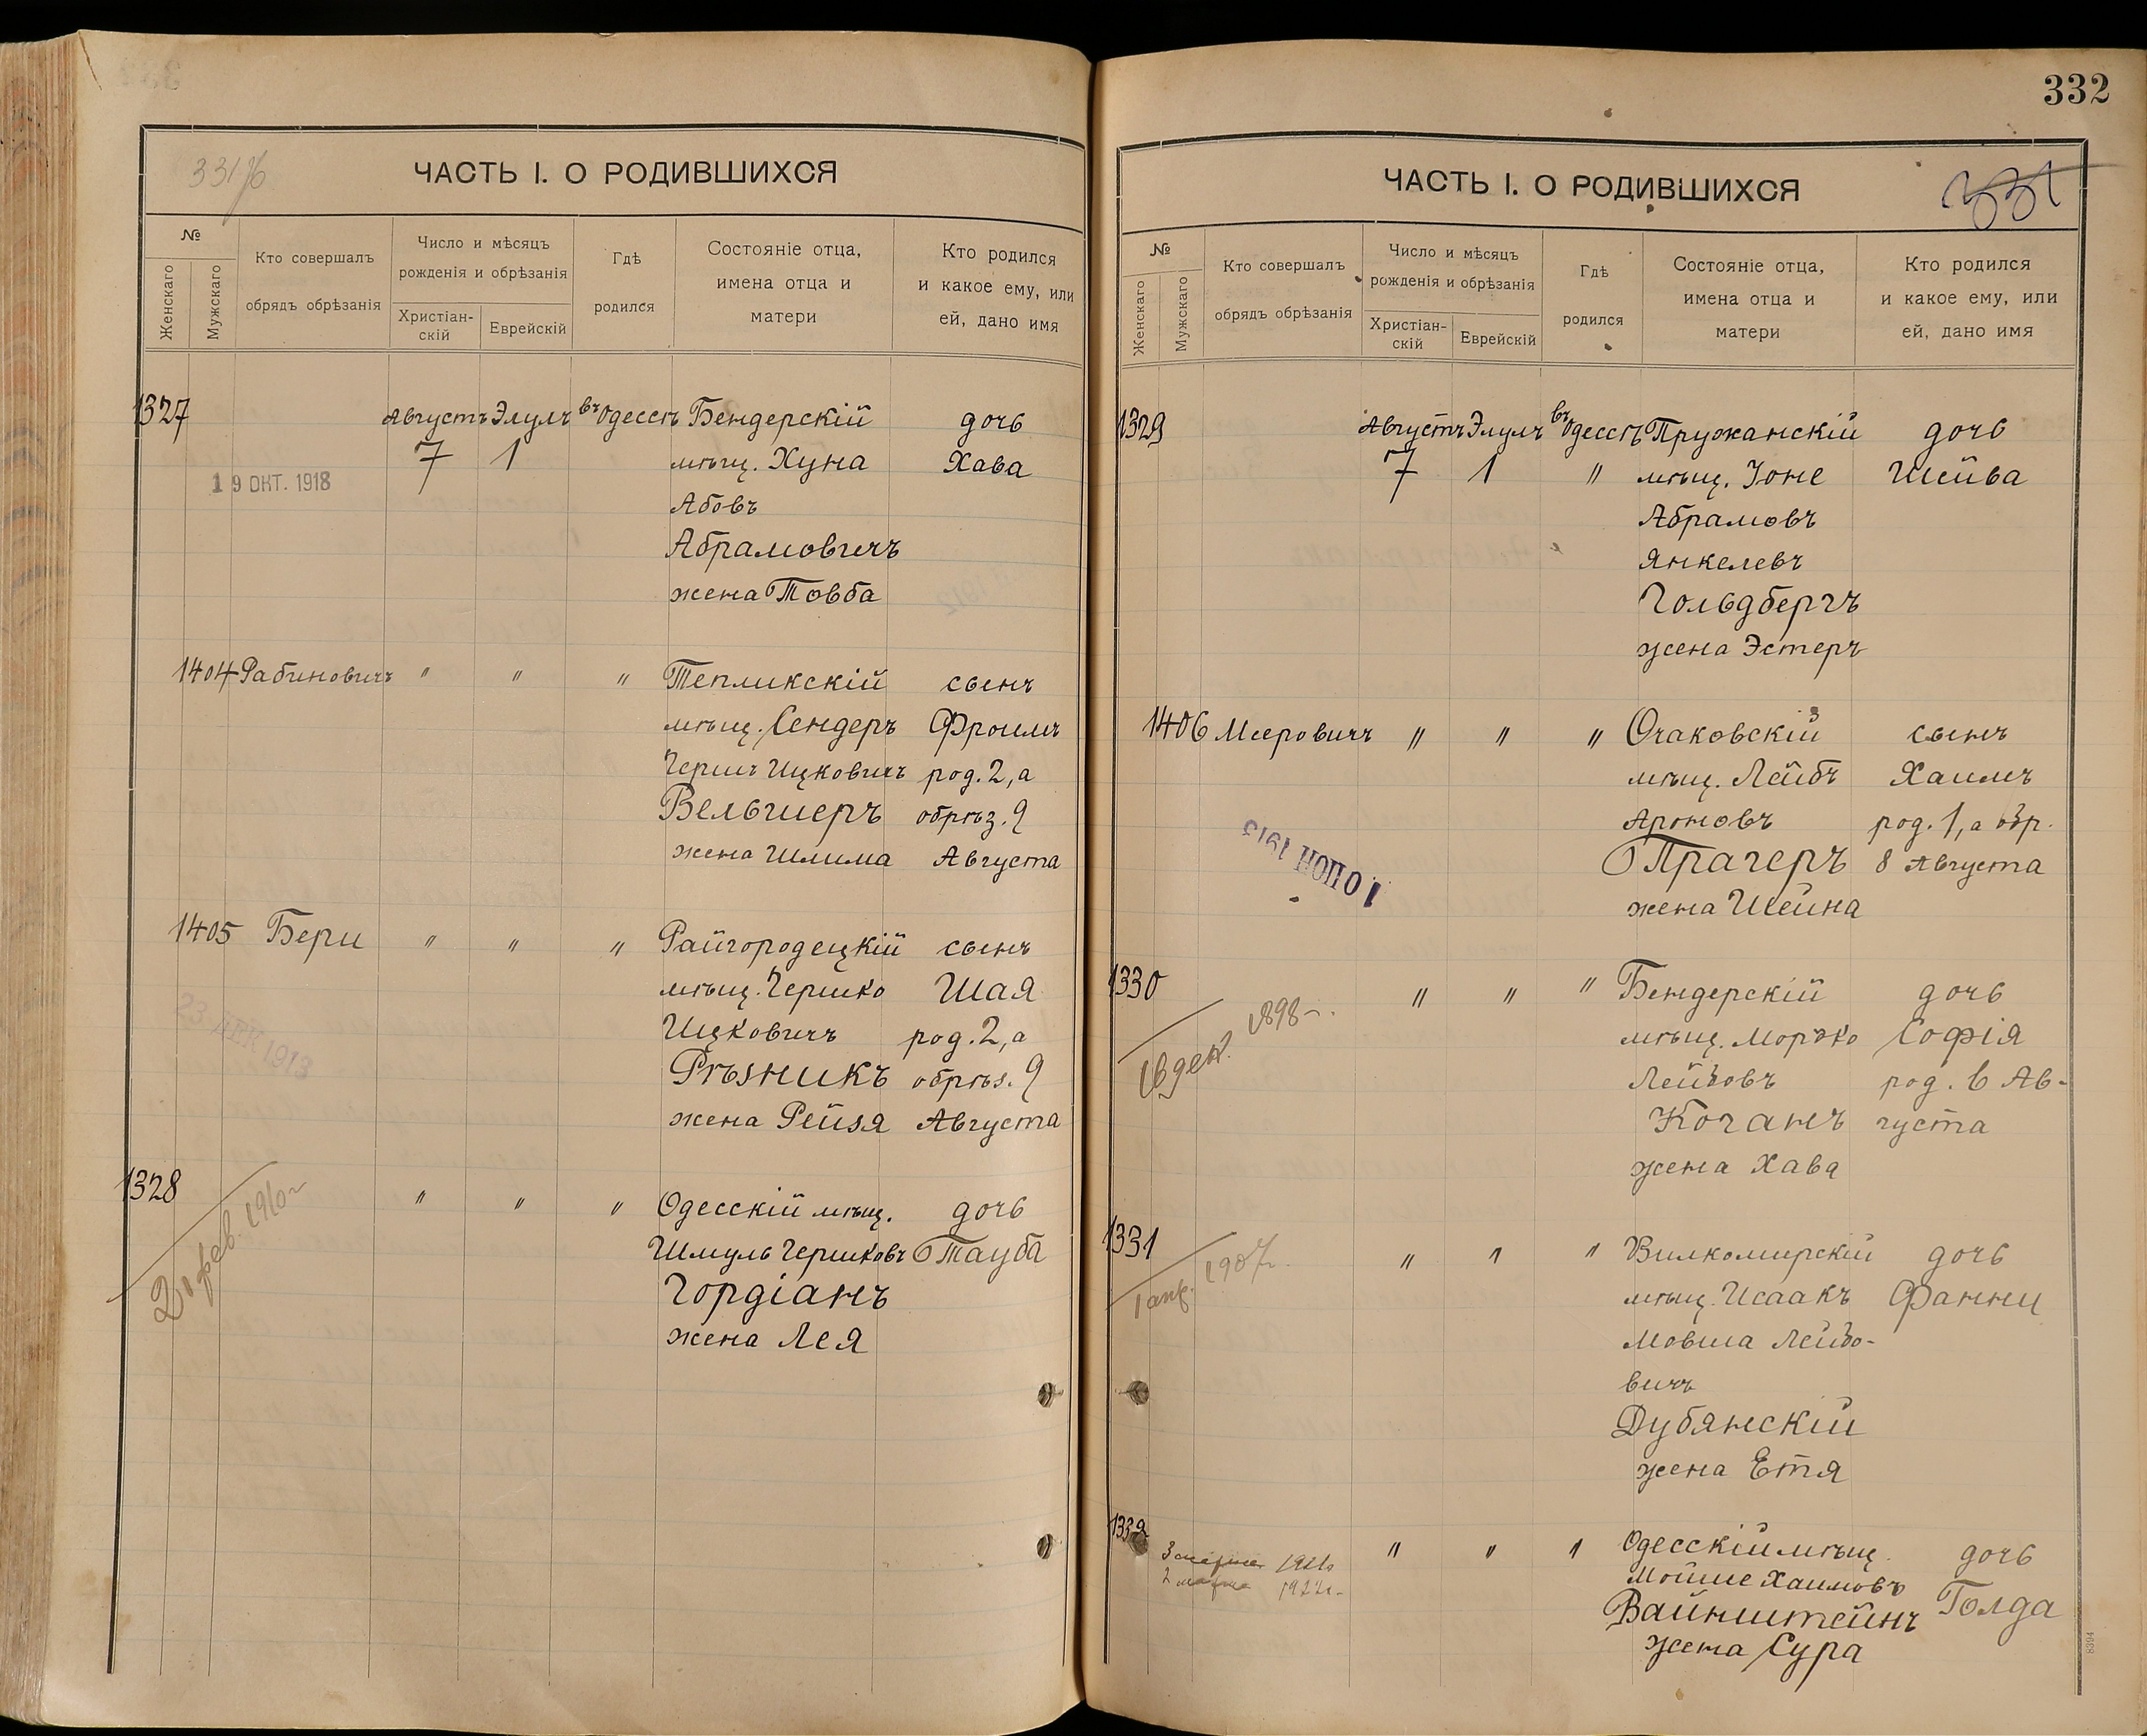 331/б
ЧАСТЬ I. О РОДИВШИХСЯ
№
Женскаго
Мужскаго
Кто совершалъ
обрядъ обрѣзанія
Число и мѣсяцъ
рожденія и обрѣзанія
Христіан-
скій
Еврейскій
Гдѣ
родился
Состояніе отца,
имена отца и
матери
Кто родился
и какое ему, или
ей, дано имя
1327 Августъ Элулъ въ Одессѣ Бендерскій дочь
7 1 мѣщ. Хуна Хава
19 ОКТ. 1918
Абовъ
Абрамовичъ
жена Товба
1404 Рабиновичъ " " " Тепликскій сынъ
мѣщ. Сендеръ Фроимъ
Гершъ Ицковичъ род. 2, а
Вельшеръ обрѣз. 9
жена Шлима Августа
1405 Бери " " " Райгородецкій сынъ
мѣщ. Гершко Шая
Ицковичъ род. 2, а
23 ДЕК 1913
Рѣзникъ обрѣз. 9
жена Рейзя Августа
1328 " " " Одесскій мѣщ. дочь
21 фев. 1910 г
Шмуль Гершковъ Тауба
Гордіанъ
жена Лея
332
ЧАСТЬ I. О РОДИВШИХСЯ
331
№
Женскаго
Мужскаго
Кто совершалъ
обрядъ обрѣзанія
Число и мѣсяцъ
рожденія и обрѣзанія
Христіан-
скій
Еврейскій
Гдѣ
родился
Состояніе отца,
имена отца и
матери
Кто родился
и какое ему, или
ей, дано имя
1329 Августъ Элулъ въ Одессѣ Пружанскій дочь
7 1 " мѣщ. Іоне Шейва
Абрамовъ
Янкелевъ
Гольдбергъ
жена Эстеръ
1406 Мееровичъ " " " Очаковскій сынъ
мѣщ. Лейбъ Хаимъ
Ароновъ род. 1, а обр.
Прагеръ 8 Августа
жена Шейна
1330 " " " Бендерскій дочь
1898 г.
мѣщ. Мордко Софія
Лейбовъ род. 6 Ав-
Коганъ густа
жена Хава
1331 " " " Вилкомирскій дочь
1907 г.
мѣщ. Исаакъ Фанни
Мовша Лейбо-
вичъ
Дубянскій
жена Етя
1332 " " " Одесскій мѣщ. дочь
Мойше Хаимовъ Голда
Вайнштейнъ
жена Сура
8394